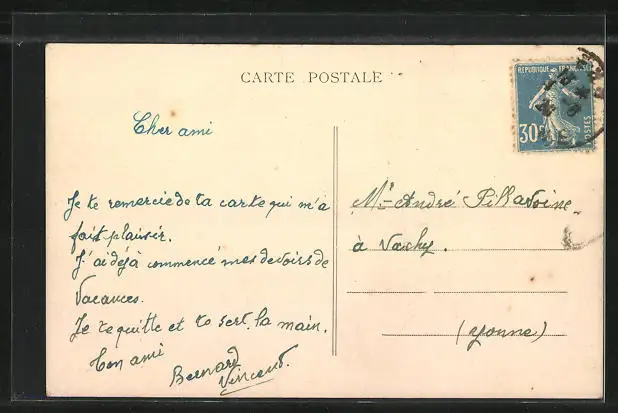 CARTE POSTALE
REPUBLIQUE FRANÇAISE
30c
POSTES
Cher ami
Je te remercie de ta carte qui m'a
fait plaisir.
J'ai déjà commencé mes devoirs de
Vacances.
Je te quitte et te sert la main.
Ton ami
Bernard
Vincent.
Mr André Pillavoine
à Vachy.
(Yonne)